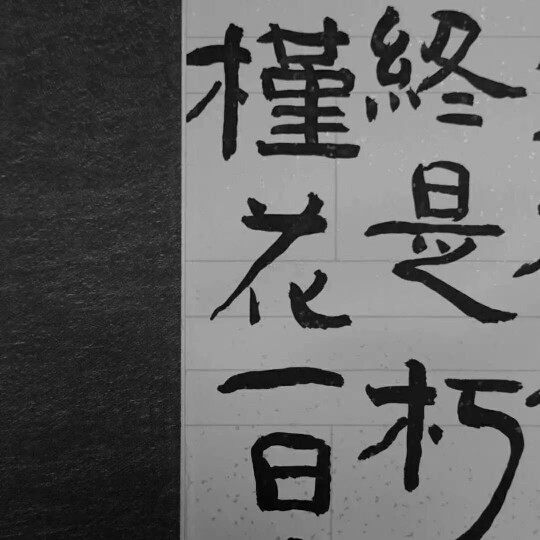 終是朽
槿花一日